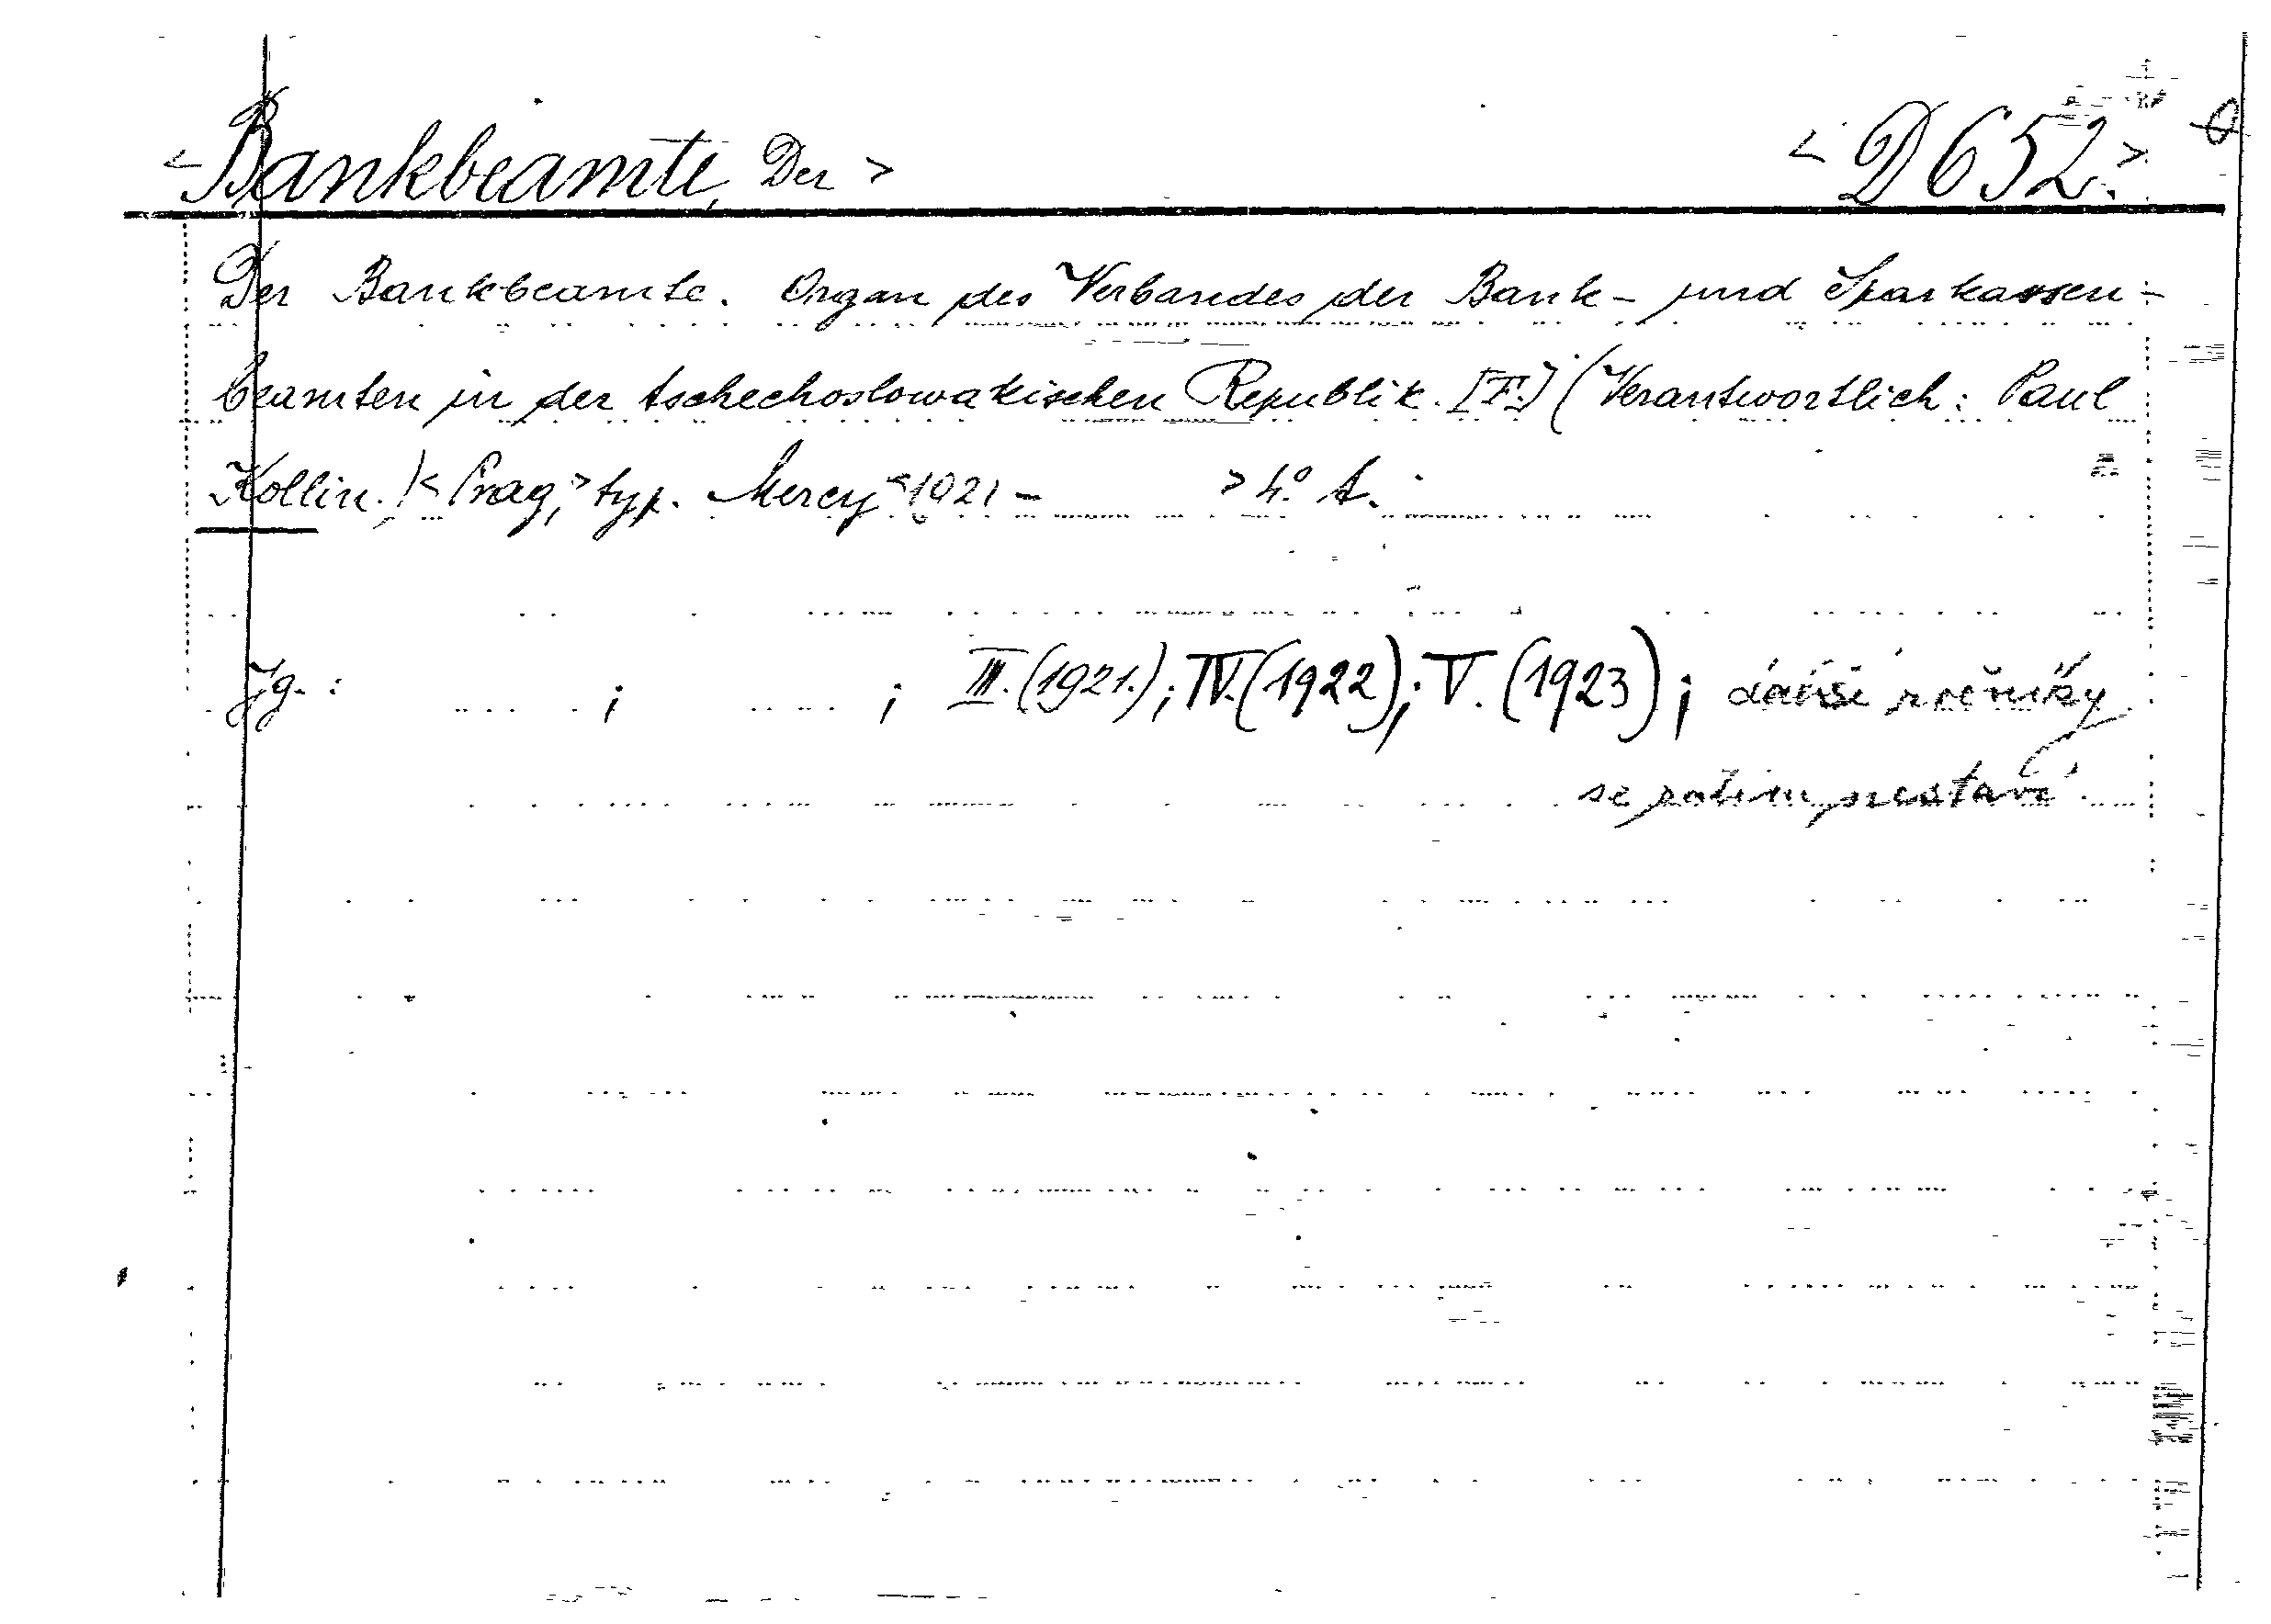 <Bankbeamte, Der> <D 652.>
Der Bankbeamte. Organ des Verbandes der Bank- und Sparkassen-
beamten in der tschechoslowakischen Republik. [F.] (Verantwortlich: Paul
Kollin.) <Prag,> typ. Mercy <1921 - > 4.° A.
Jg. : ; ; III. (1921.); IV. (1922); V. (1923); další ročníky
se zatím nestaví